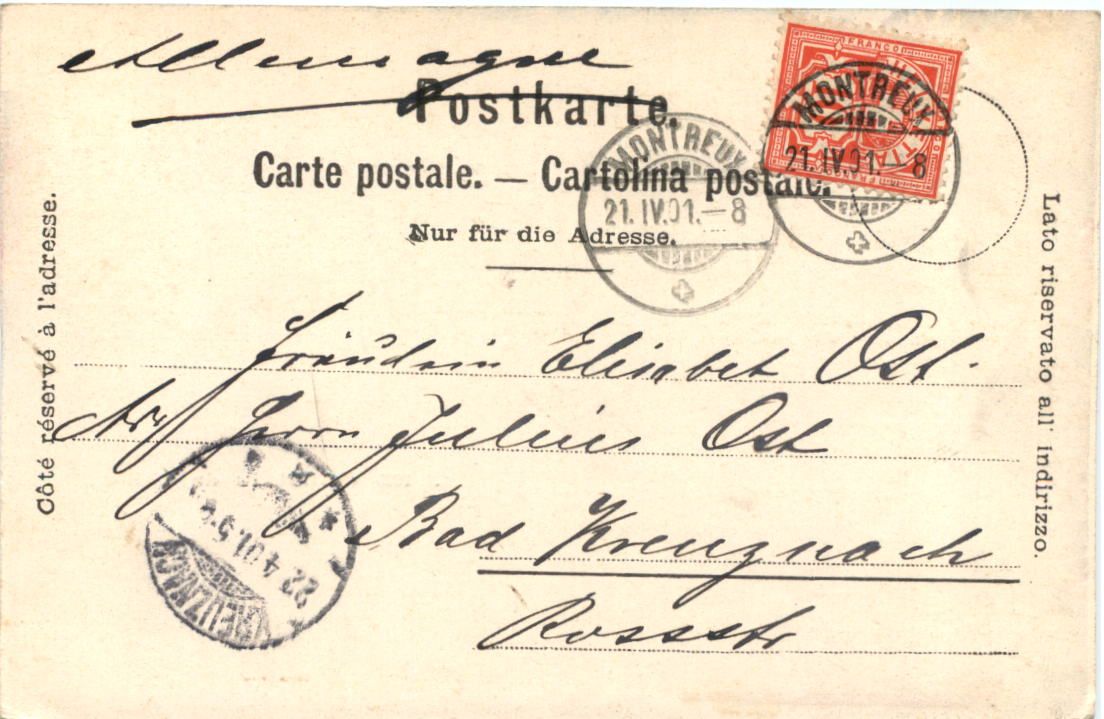 Allemagne
Postkarte.
Carte postale. — Cartolina postale.
Nur für die Adresse.
Côté réservé à l'adresse.
Lato riservato all' indirizzo.
FRANCO
MONTREUX
21.IV.01.–8
MONTREUX
21.IV.01.–8
Fräulein Elisabet Ost.
Herrn Julius Ost
Bad Kreuznach
Rossstr
KREUZNACH
22.4.01.5-6